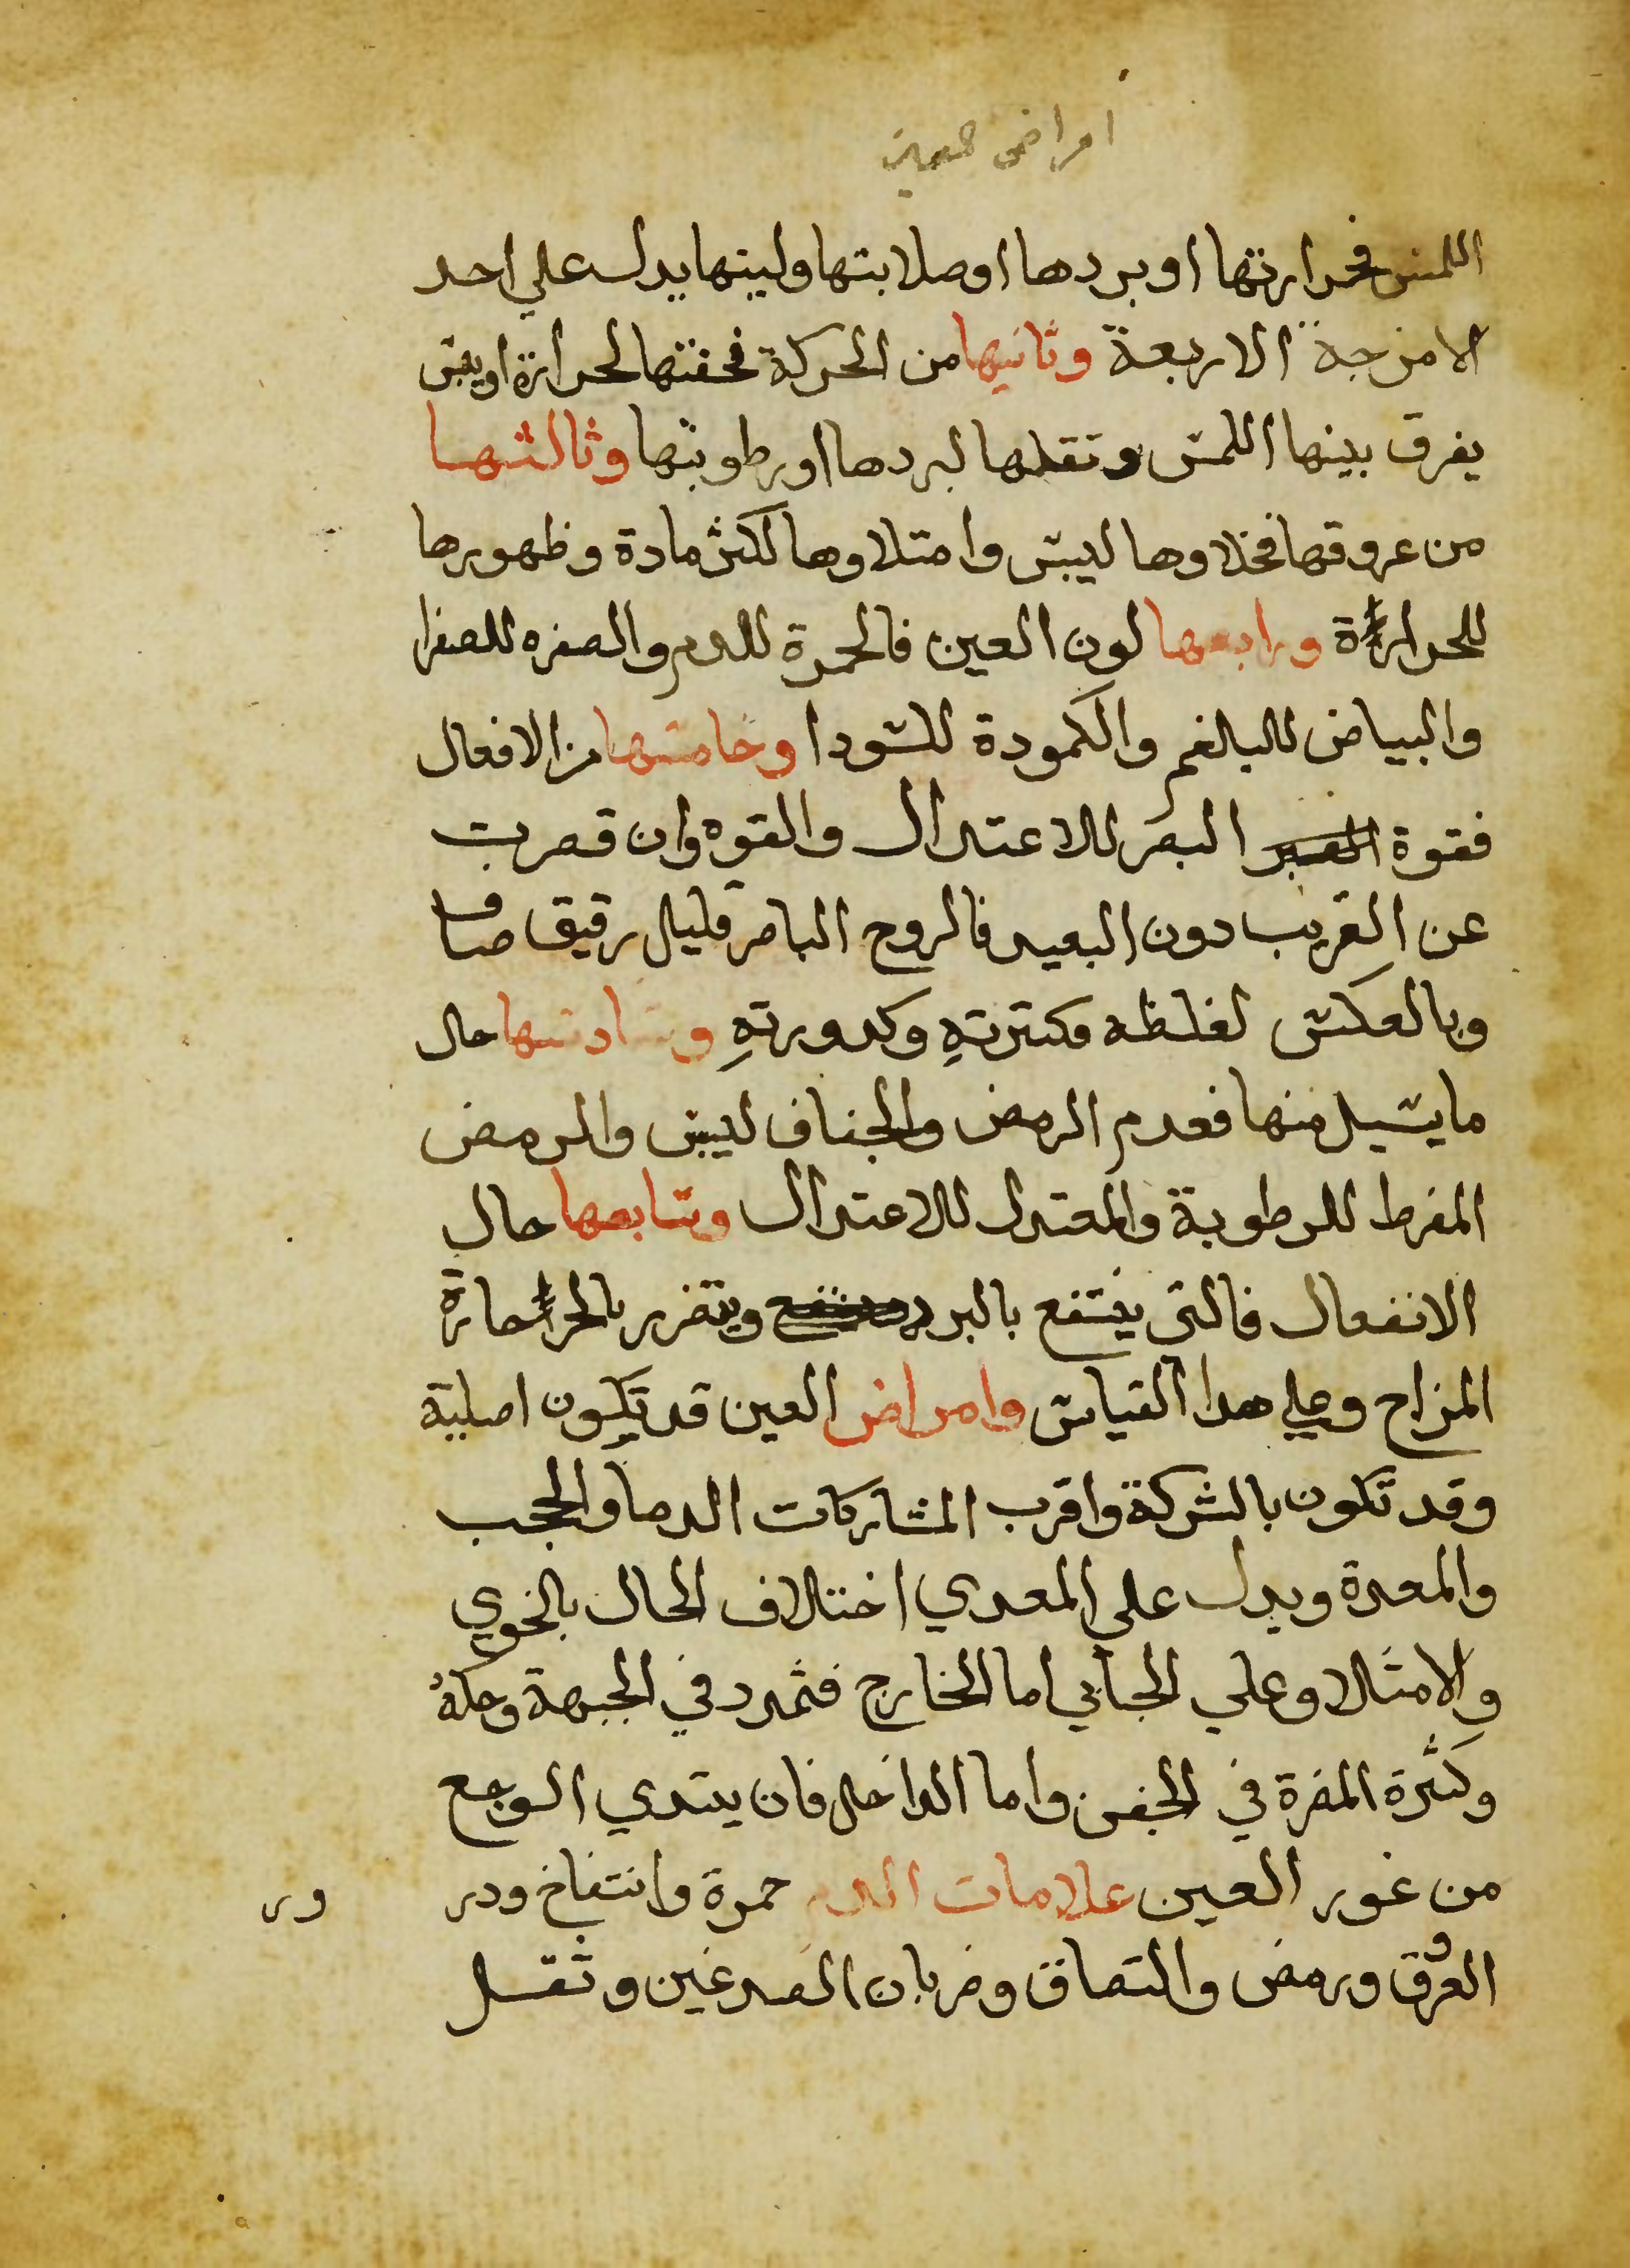 امراض العين
اللمس فحرارتها او بردها او صلابتها ولينها يدل علي احد
الامزجة الاربعة وثانيها من الحركة فخفتها لحرارة او يبس
يفرق بينها اللمس وثقلها لبردها او رطوبتها وثالثها
من عروقها فخلاوها ليبس وامتلاوها لكثر مادة وظهورها
للحرارة ورابعها لون العين فالحمرة للدم والصفره للصفرا
والبياض للبلغم والكمودة للسودا وخامسها من الافعال
فقوة البصر للاعتدال والقوه وان قصرت
عن القريب دون البعيد فالروح الباصر قليل رقيق صاف
وبالعكس لغلظه وكثرتهِ وكدورتهِ وسادسها حال
ما يسيل منها فعدم الرمض والجفاف ليبس والرمض
المفرط للرطوبة والمعتدل للاعتدال وسابعها حال
الانفعال فالتي ينتفع بالبرد ويتضرر بالحر حارة
المزاج وعلي هدا القياس وامراض العين قد تكون اصلية
وقد تكون بالشركة واقرب المشاركات الدماو الحجب
والمعدة ويدل علي المعدي اختلاف الحال بالخوي
والامتلا وعلي الحجابي اما الخارج فتمدد في الجبهة وحكة
وكثرة المضرة في الجفن واما الداخل فان يبتدي الوجع
من غور العين علامات الدم حمرة وانتفاخ ودر
ور
العروق ورمض والتصاق وضربان الصدغين وثقل